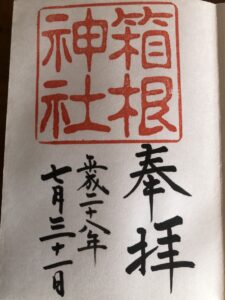 箱根
神社
奉拝
平成二十八年
七月三十一日